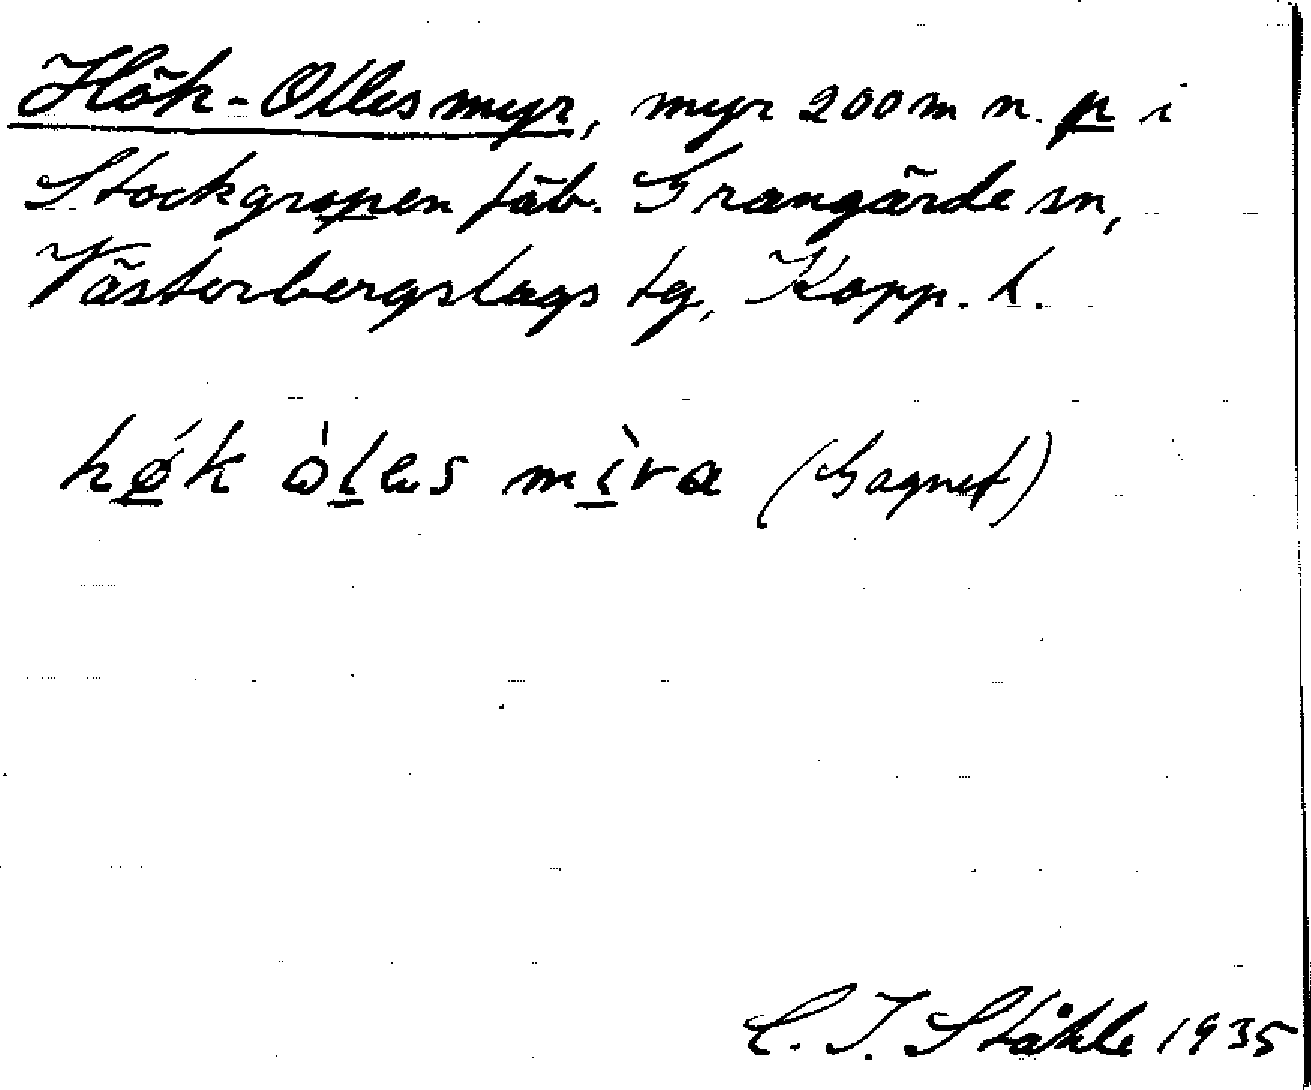 Hök-Olles myr, myr 200 m n. p i
Stockgropen fäb. Grangärde sn,
Västerbergslags tg, Kopp. l.
hǿk òles mìra (Gagnef)
C. I. Ståhle 1935